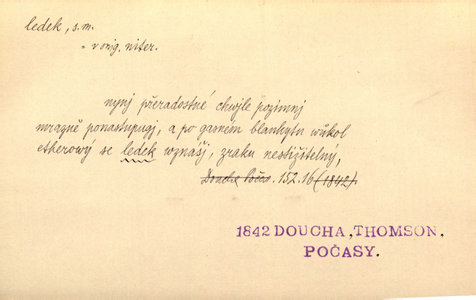 ledek, s. m.
= v orig. niter.
nynj přeradostné chwjle pozimnj
mrazně ponastupugj, a po garném blankytu wůkol
etherowý se ledek wznášj, zraku nestižitelný,
Doucha Počas. 152.16 (1842).
1842 DOUCHA, THOMSON,
POČASY.